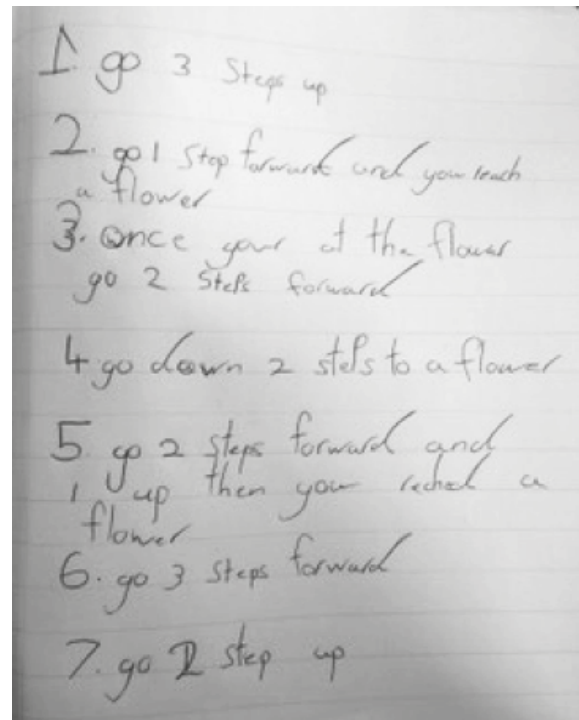 1. go 3 Steps up
2. go 1 step forward and you reach
a flower
3. Once your at the flower
go 2 steps forward
4. go down 2 steps to a flower
5. go 2 steps forward and
1 up then you reched a
flower
6. go 3 steps forward
7. go step up